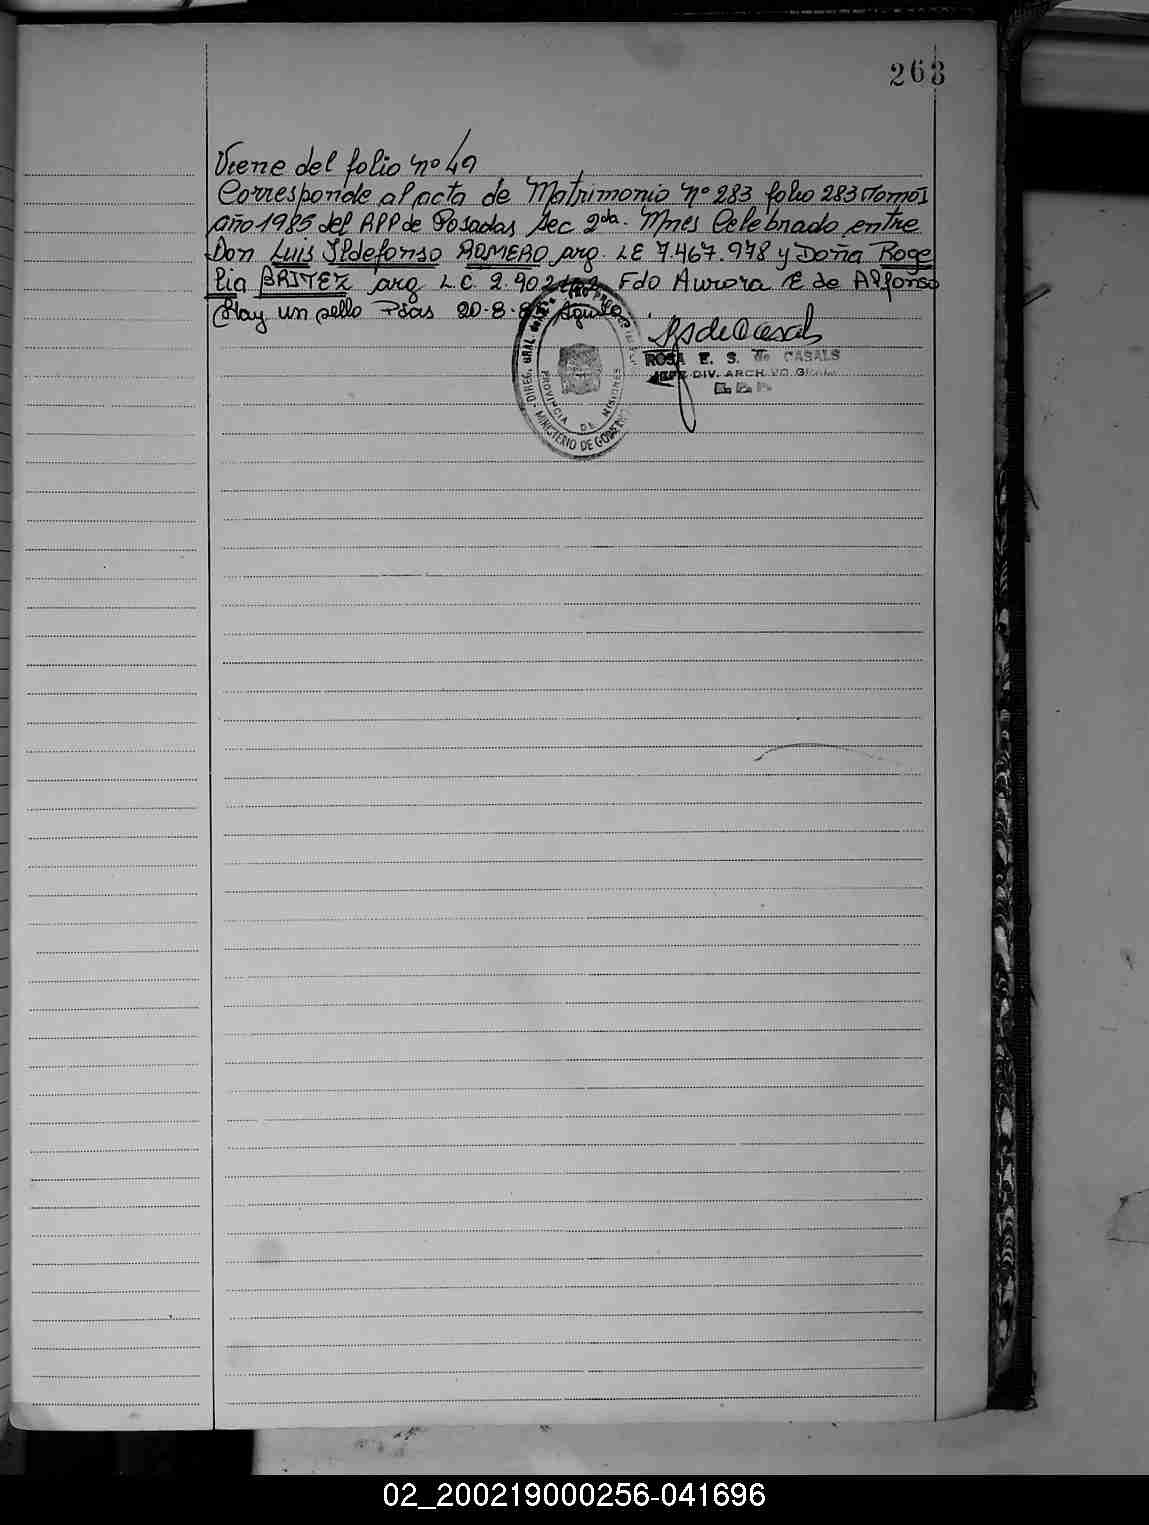 263
Viene del folio nº 49
Corresponde al acta de Matrimonio nº 283 folio 283 Tomo I
año 1985 del APP de Posadas Sec 2da. Mnes Celebrado entre
Don Luis Ildefonso ROMERO arg. LE 7.467.978 y Doña Roge
lia BRITEZ arg L.C. 2.902 Fdo Aurora E de Alfonso
Hay un sello Pdas 20-8-8 Aguila
ROSA E. S. de CASALS
JEFE DIV. ARCHIVO GRAL.
DIREC. GRAL.
PROVINCIA DE MISIONES
MINISTERIO DE GOBIERNO
02_200219000256-041696